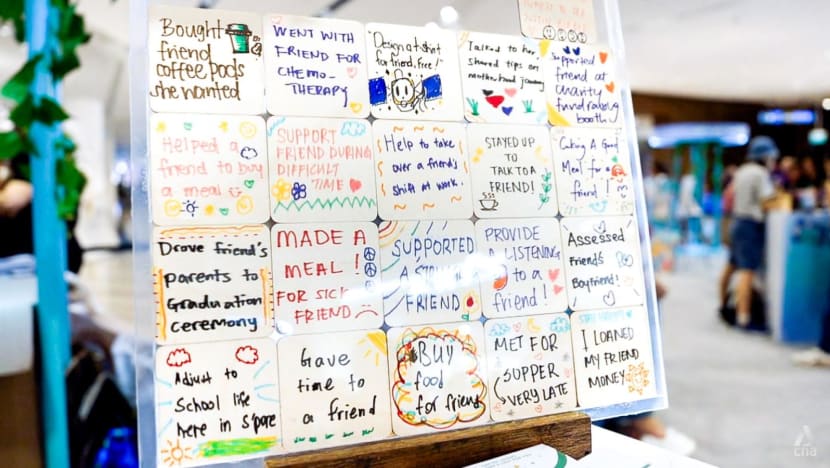 Bought
friend
coffee pods
she wanted
WENT WITH
FRIEND FOR
CHEMO-
THERAPY
Design a tshirt
for friend, free!
Talked to her
Shared tips on
motherhood journey
Supported
friend at
charity
fundraising
booth
Helped a
friend to buy
a meal
SUPPORT
FRIEND DURING
DIFFICULT
TIME
Help to take
over a friend's
shift at work.
STAYED UP
TO
TALK TO A
FRIEND!
Cooking A Good
Meal for a
friend!
Drove friend's
parents to
Graduation
ceremony
MADE A
MEAL!
FOR SICK
FRIEND
SUPPORTED
A
FRIEND
PROVIDE
A LISTENING
to a
friend!
Assessed
Friend's
Boyfriend!
Adjust to
School life
here in S'pore
Gave
time to
a friend
BUY
food
for friend
MET FOR
SUPPER
VERY LATE
I LOANED
MY FRIEND
MONEY
cna